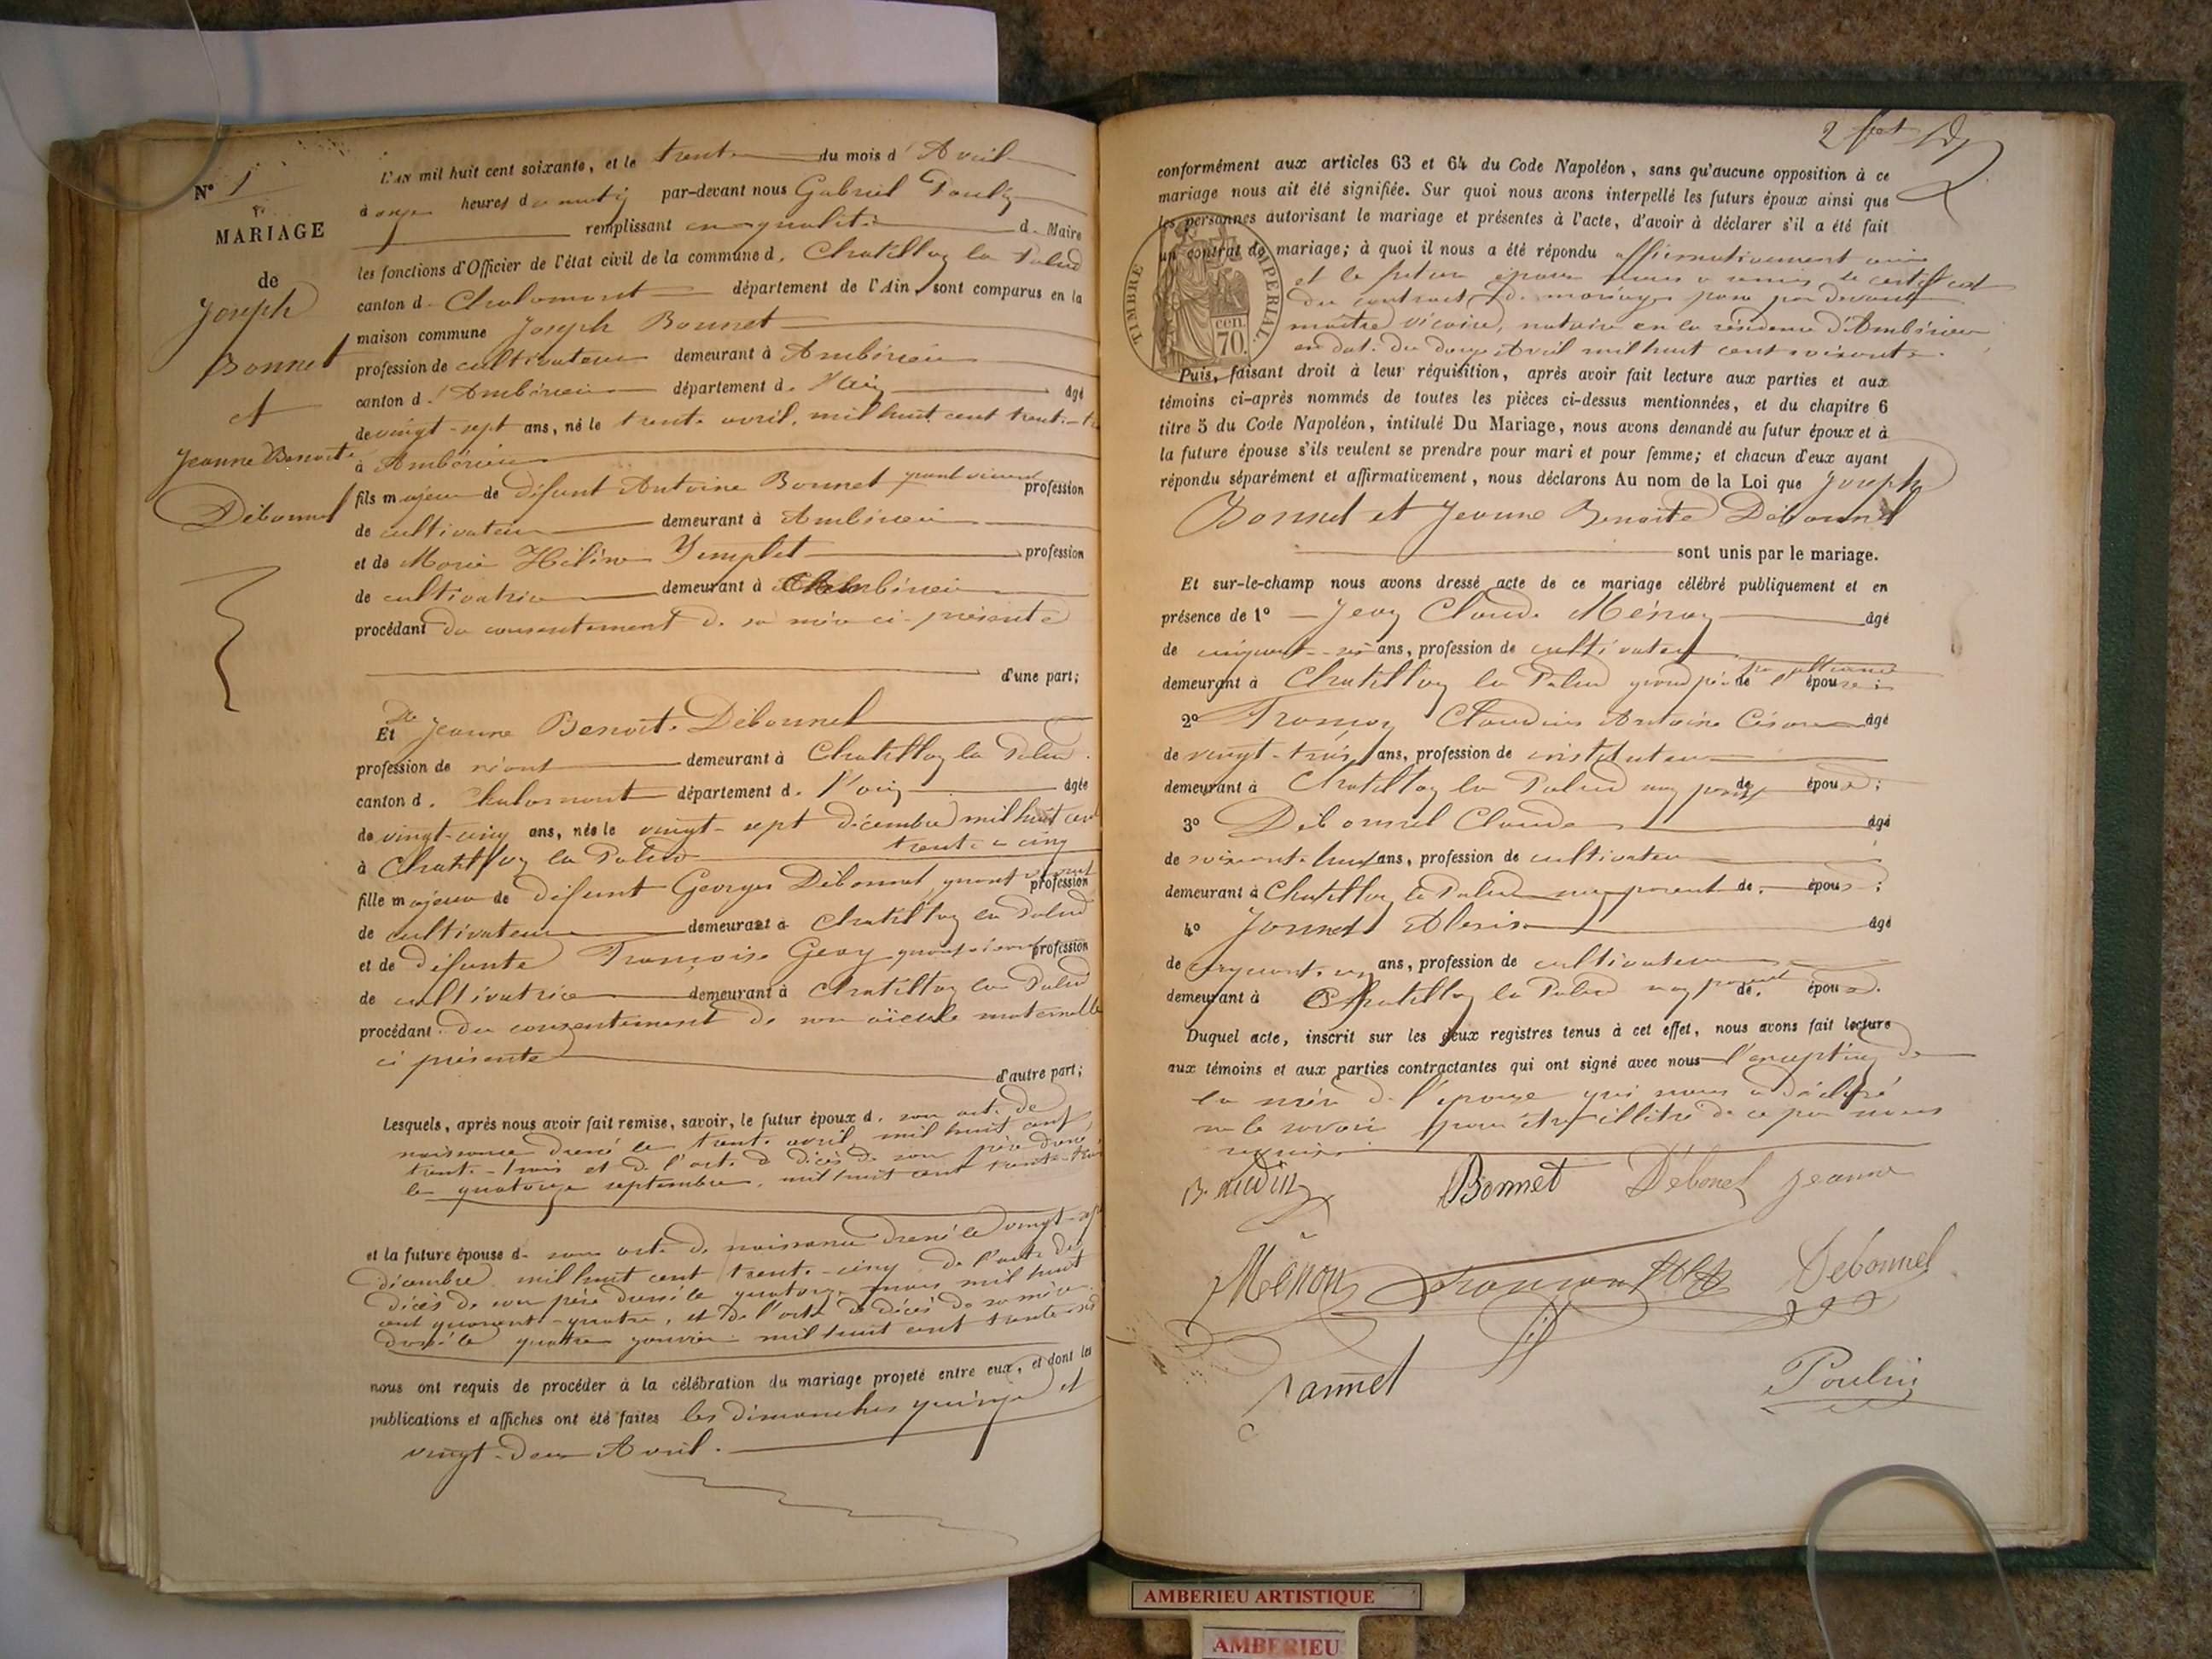 N° 1
MARIAGE
de
Joseph
Bonnet
et
Jeanne Benoite
Débonnel
L'AN mil huit cent soixante, et le trente du mois d'Avril
à onze heures du matin par-devant nous Gabriel Poulin
remplissant en qualité de Maire
les fonctions d'Officier de l'état civil de la commune d. Chatillon la Palud
canton d. Chalamont département de l'Ain, sont comparus en la
maison commune Joseph Bonnet
profession de cultivateur demeurant à Ambérieu
canton d'Ambérieu département d. l'Ain âgé
de vingt-sept ans, né le trente avril, mil huit cent trente-
à Ambérieu
fils majeur de défunt Antoine Bonnet quant vivant profession
de cultivateur demeurant à Ambérieu
et de Marie Hélène profession
de cultivatrice demeurant à Ambérieu
procédant du consentement de sa mère ci-présente
d'une part;
Et Jeanne Benoite Débonnel
profession de néant demeurant à Chatillon la Palud
canton d. Chalamont département d. l'ain âgée
de vingt-cinq ans, née le vingt-sept décembre mil huit cent
trente-cinq
à Chatillon la Palud
fille majeure de défunt Georges Débonnel, quant vivant profession
de cultivateur demeurant à Chatillon la Palud
et de défunte Françoise Geay quant vivant profession
de cultivatrice demeurant à Chatillon la Palud
procédant du consentement de son aïeule maternelle
ci présente
d'autre part;
Lesquels, après nous avoir fait remise, savoir, le futur époux d. son acte de
naissance dressé le trente avril, mil huit cent
trente-trois et de l'acte de décès de son père dressé
le quatorze septembre, mil huit cent trente-
et la future épouse d. son acte de naissance dressé le vingt-sept
décembre mil huit cent trente-cinq, de l'acte de
décès de son père dressé le quatorze mars mil huit
cent quarante-quatre, et de l'acte de décès de sa mère
dressé le quatre janvier mil huit cent trente
nous ont requis de procéder à la célébration du mariage projeté entre eux, et dont les
publications et affiches ont été faites les dimanches quinze et
vingt-deux Avril.
conformément aux articles 63 et 64 du Code Napoléon, sans qu'aucune opposition à ce
mariage nous ait été signifiée. Sur quoi nous avons interpellé les futurs époux ainsi que
les personnes autorisant le mariage et présentes à l'acte, d'avoir à déclarer s'il a été fait
un contrat de mariage; à quoi il nous a été répondu affirmativement
et le futur époux nous a remis le certificat
du contrat de mariage passé par devant
maître Vicaire, notaire en la résidence d'Ambérieu
en date du douze Avril mil huit cent soixante.
TIMBRE IMPERIAL
70 cen.
Puis, faisant droit à leur réquisition, après avoir fait lecture aux parties et aux
témoins ci-après nommés de toutes les pièces ci-dessus mentionnées, et du chapitre 6
titre 5 du Code Napoléon, intitulé Du Mariage, nous avons demandé au futur époux et à
la future épouse s'ils veulent se prendre pour mari et pour femme; et chacun d'eux ayant
répondu séparément et affirmativement, nous déclarons Au nom de la Loi que Joseph
Bonnet et Jeanne Benoite Débonnel
sont unis par le mariage.
Et sur-le-champ nous avons dressé acte de ce mariage célébré publiquement et en
présence de 1° Jean Claude Ménon âgé
de cinquante-six ans, profession de cultivateur
demeurant à Chatillon la Palud grand père par alliance de l'épouse;
2° Françon Claudius Antoine César âgé
de vingt-trois ans, profession de instituteur
demeurant à Chatillon la Palud non parent de époux;
3° Débonnel Claude âgé
de soixante-huit ans, profession de cultivateur
demeurant à Chatillon la Palud non parent de. époux;
4° Jannet Alexis âgé
de cinquante-un ans, profession de cultivateur
demeurant à Chatillon la Palud non parent de. époux.
Duquel acte, inscrit sur les deux registres tenus à cet effet, nous avons fait lecture
aux témoins et aux parties contractantes qui ont signé avec nous l'exception de
la mère de l'épouse qui nous a déclaré
ne le savoir pour être illitré de ce par nous
requise
Bonnet Débonel Jeanne
Ménon Françon Debonnel
Jannet Poulin
AMBERIEU ARTISTIQUE
AMBERIEU